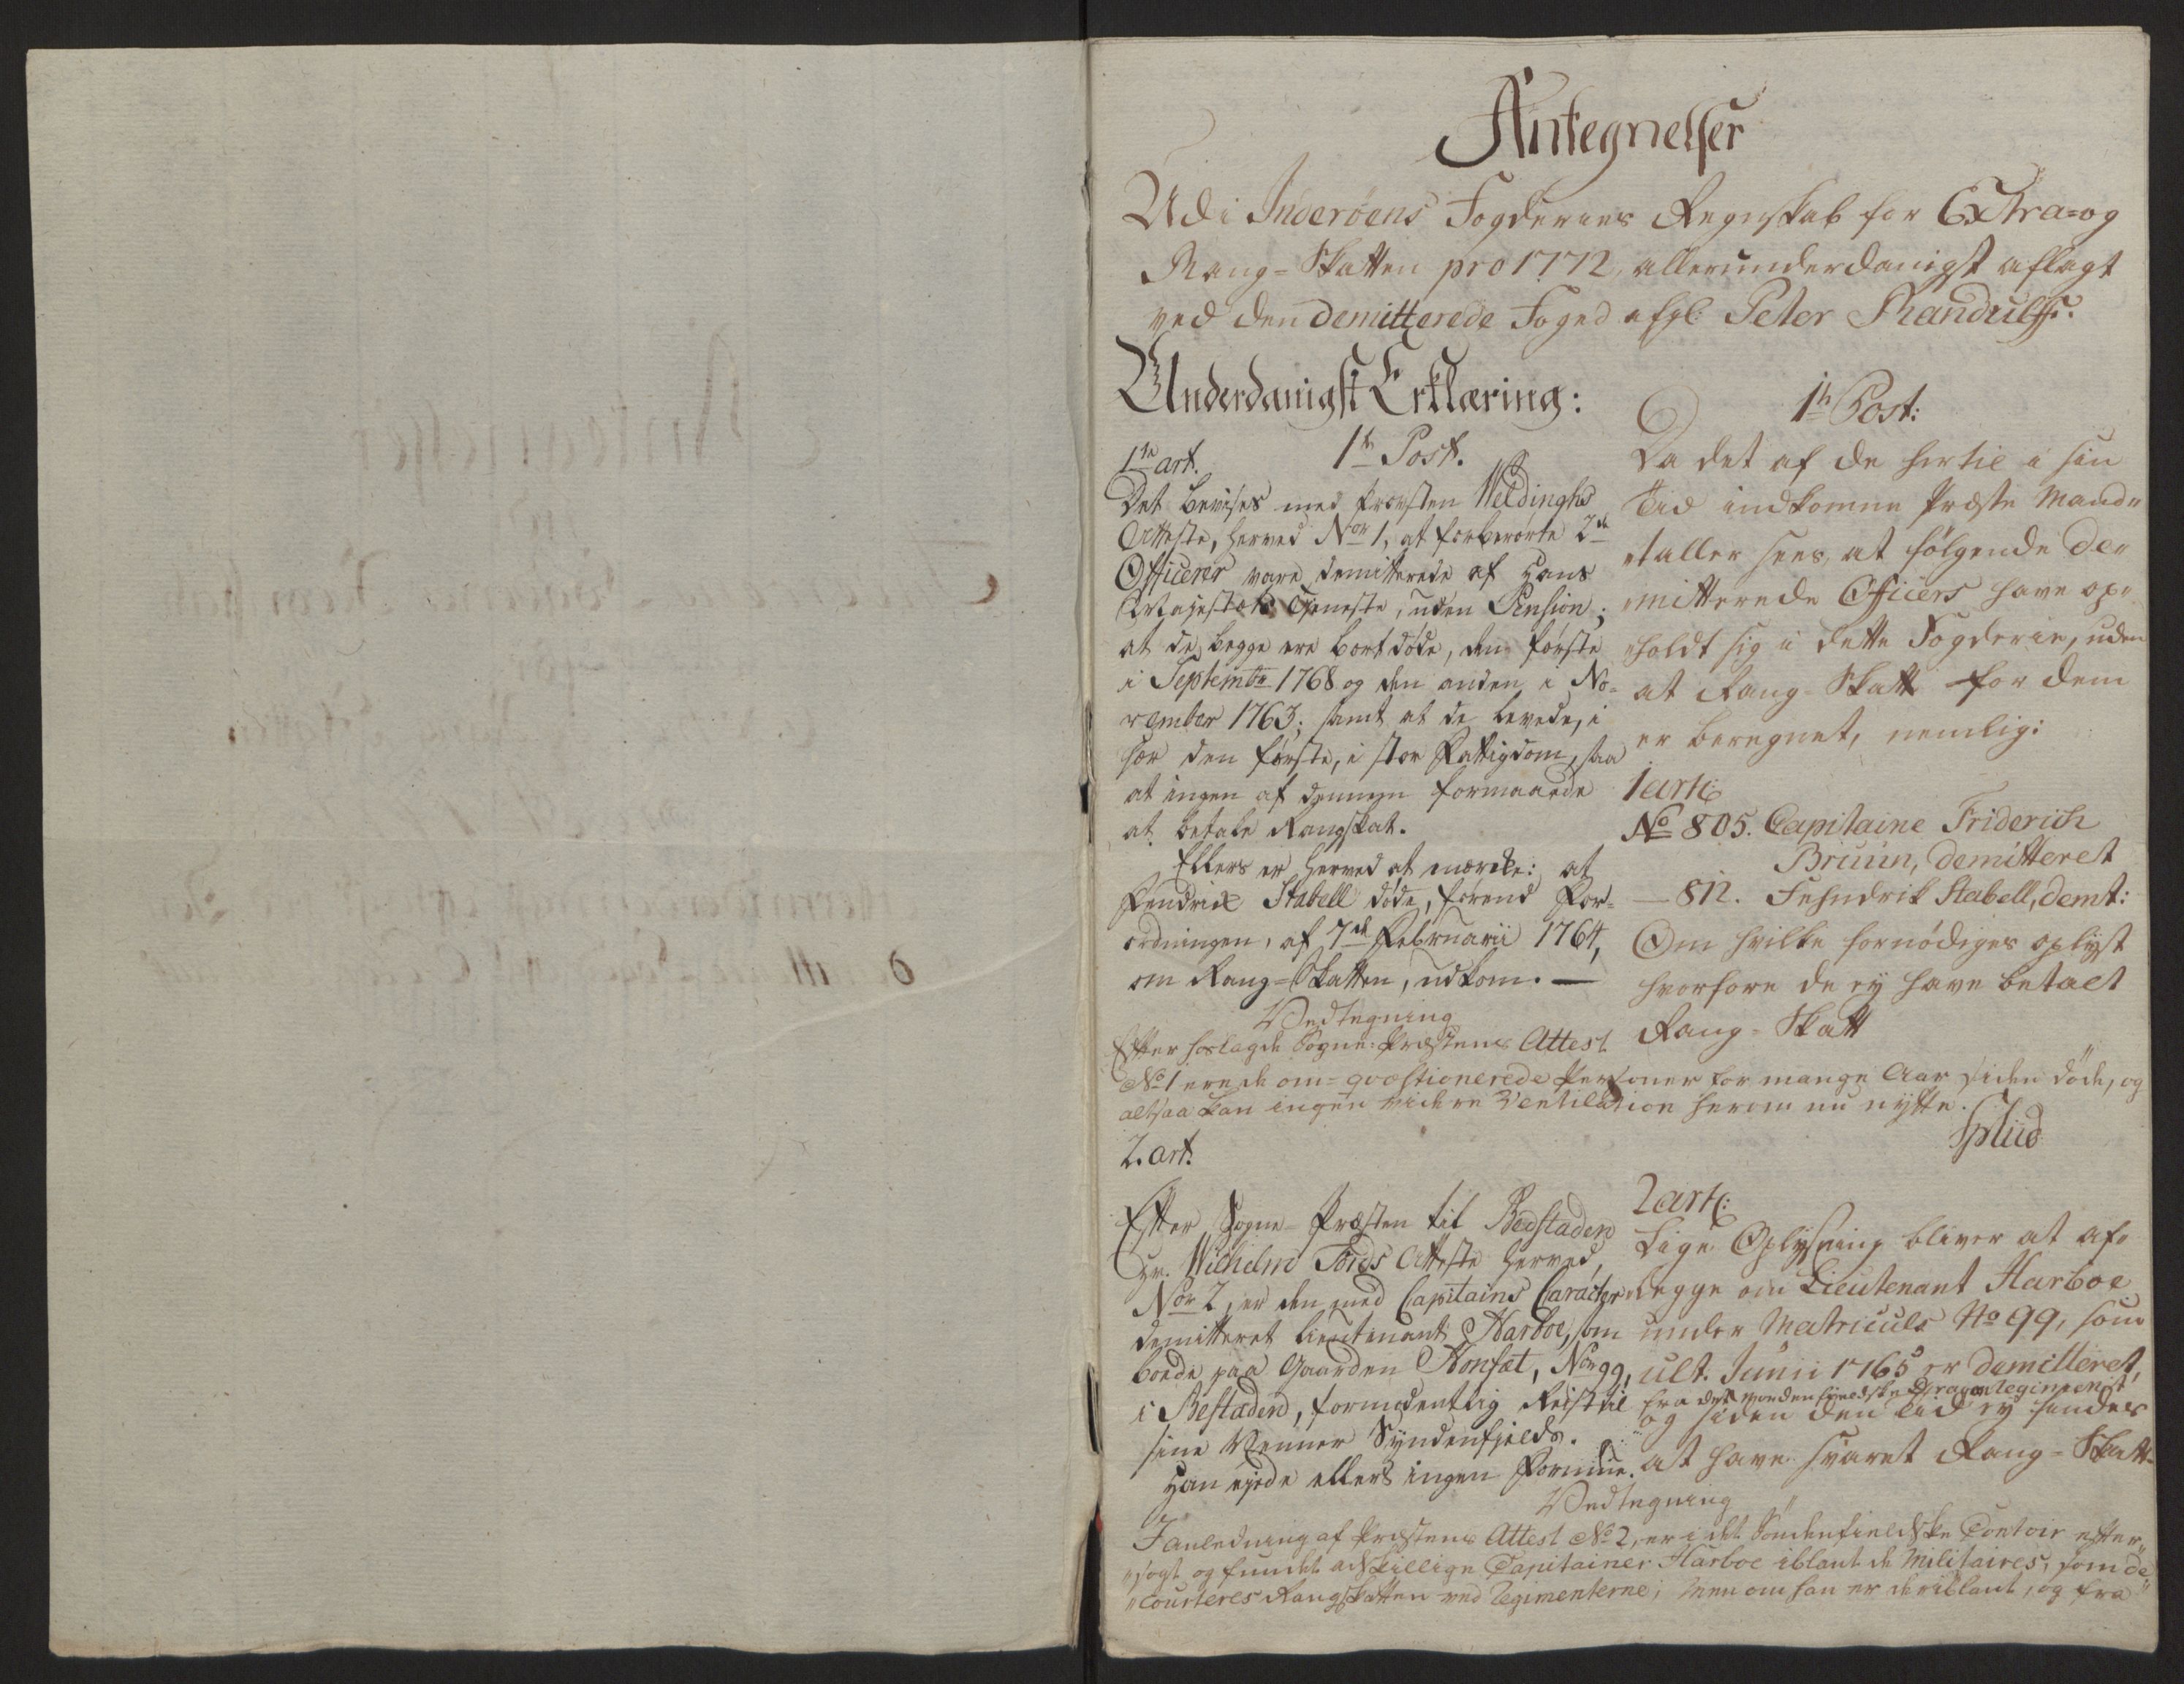 Antegnelser
Udi Inderöens Fogderies Regnskab for Extra= og
Rang-Skatten pro 1772, allerunderdanigst aflagt
ved den demitterede Foged  Peter Randulff.
Underdanigst Erklæring:
1te art. 1te Post.
Det bevises med Provsten Weldinghs
Atteste, herved Nor 1, at forberörte 2de
Officerer vare demitterede af Hans
Majestæts Tjeneste, uden Pension;
at de begge ere bortdöde, den förste
i Septembr 1768 og den anden i No-
vember 1763; samt at de levede, i
sær den förste, i stor Fattigdom, saa
at ingen af dennem formaaede
at betale Rangskat.
Ellers er herved at mærke: at
Fendrich Stabell döde, förend For-
ordningen, af 7de Februarii 1764,
om Rang-Skatten, udkom. —
1te Post:
Da det af de hertil i sin
Tid indkomne Præste Mand-
taller sees, at fölgende de-
mitterede Officers have op-
holdt sig i dette Fogderie, uden
at Rang-Skatt for dem
er beregnet, nemlig:
1 art:
No 805. Capitaine Friderich
Bruun, demitteret
— 812. Fehndrik Stabell, demt:
Om hvilke fornödiges oplyst
hvorfore de ey have betalt
Rang-Skatt
Vedtegning
Efter hoslagde Sogne-Præstens Attest
No 1 ere de om-qvæstionerede Personer for mange Aar siden döde, og
altsaa kan ingen videre Ventilation herom nu nytte.
2. art.
Efter Sogne-Præsten til Bedstaden
Hr. Wilhelm  Atteste herved,
Nor 2, er den med Capitains Caracter
demitteret Lieutenant Harboe, som
boede paa Gaarden , Nor 99,
i Bestaden, formodentlig Reist til
sine Venner Syndenfjelds.
Han ejede ellers ingen Formue.
2 art:
Lige Oplysning bliver at af-
lægge om Lieutenant Harboe
under Matriculs No 99, som
ult. Junii 1765 er demitteret,
fra det Nordenfieldske Dragon Regiment
og siden den tid ey findes
at have svaret Rang-Skatt
Vedtegning
I anledning af Præstens Attest No 2, er i det Söndenfieldske Contoir efter-
sögt og fundet adskillige Capitainer Harboe iblant de Militaires, som de-
courteres Rangskatten ved Regimenterne; men om han er deriblant, og fra